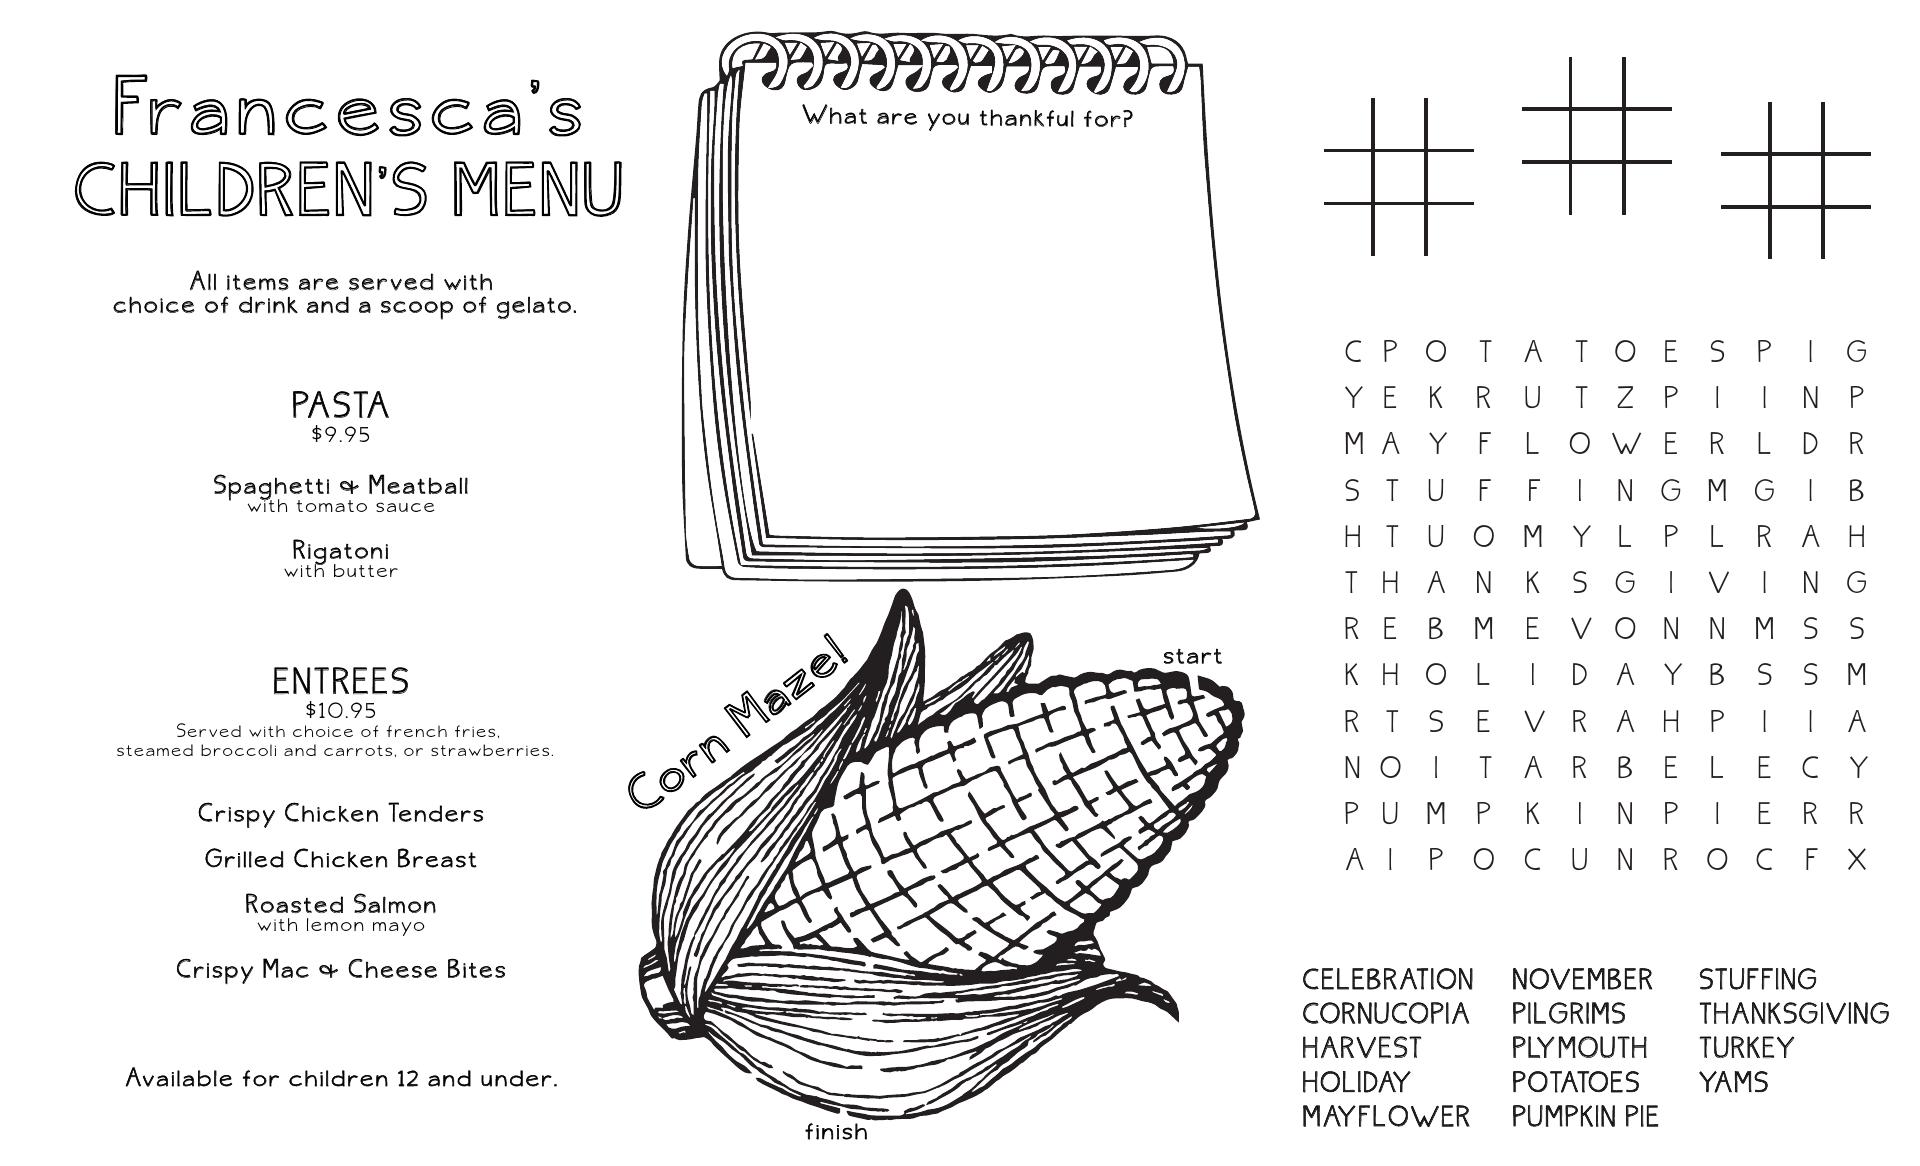 Francesca's
CHILDREN'S MENU
All items are served with
choice of drink and a scoop of gelato.
PASTA
$9.95
Spaghetti & Meatball
with tomato sauce
Rigatoni
with butter
ENTREES
$10.95
Served with choice of french fries,
steamed broccoli and carrots, or strawberries.
Crispy Chicken Tenders
Grilled Chicken Breast
Roasted Salmon
with lemon mayo
Crispy Mac & Cheese Bites
Available for children 12 and under.
What are you thankful for?
Corn Maze!
start
finish
C P O T A T O E S P I G
Y E K R U T Z P I I N P
M A Y F L O W E R L D R
S T U F F I N G M G I B
H T U O M Y L P L R A H
T H A N K S G I V I N G
R E B M E V O N N M S S
K H O L I D A Y B S S M
R T S E V R A H P I I A
N O I T A R B E L E C Y
P U M P K I N P I E R R
A I P O C U N R O C F X
CELEBRATION
CORNUCOPIA
HARVEST
HOLIDAY
MAYFLOWER
NOVEMBER
PILGRIMS
PLYMOUTH
POTATOES
PUMPKIN PIE
STUFFING
THANKSGIVING
TURKEY
YAMS